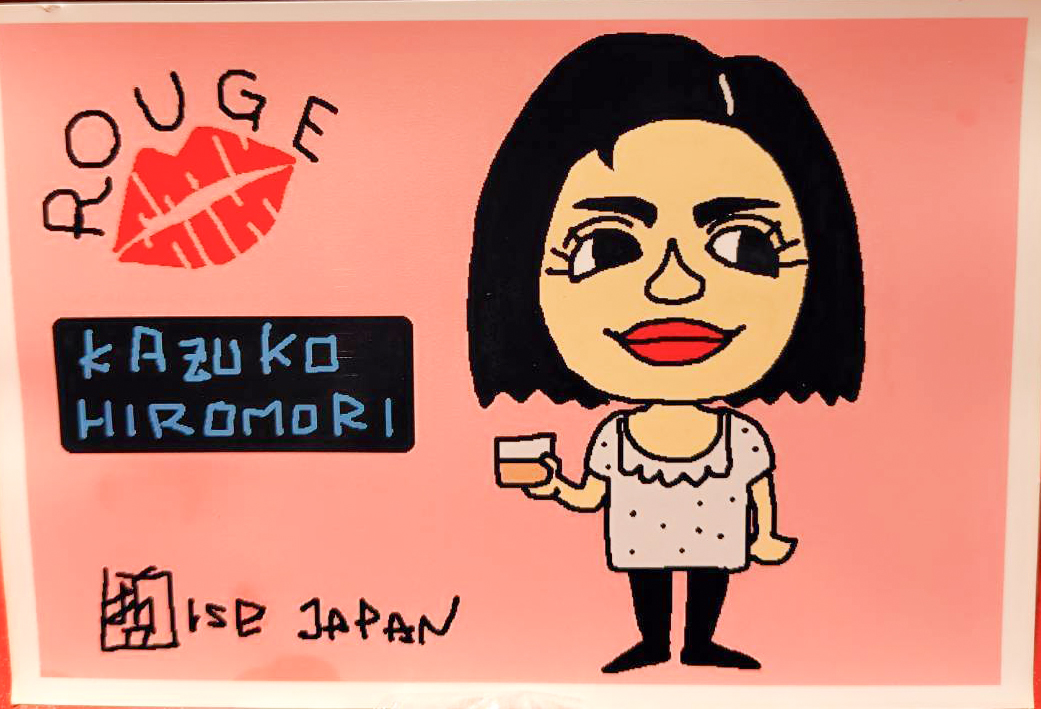 ROUGE
KAZUKO
HIROMORI
ise JAPAN